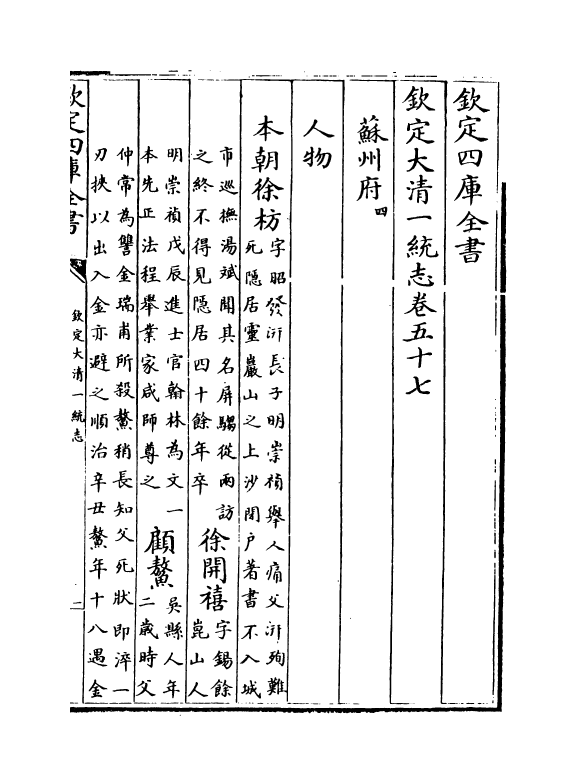 欽定四庫全書
欽定大清一統志卷五十七
蘇州府四
人物
本朝徐枋字昭發汧長子明崇禎舉人痛父汧殉難
死隱居靈巖山之上沙閉戶著書不入城
市巡撫湯斌聞其名屏騶從兩訪
之終不得見隱居四十餘年卒
徐開禧字錫餘
崑山人
明崇禎戊辰進士官翰林為文一
本先正法程舉業家咸師尊之
顧鰲吳縣人年
二歲時父
仲常為讐金瑞甫所殺鰲稍長知父死狀即淬一
刃挾以出入金亦避之順治辛丑鰲年十八遇金
欽定四庫全書
欽定大清一統志